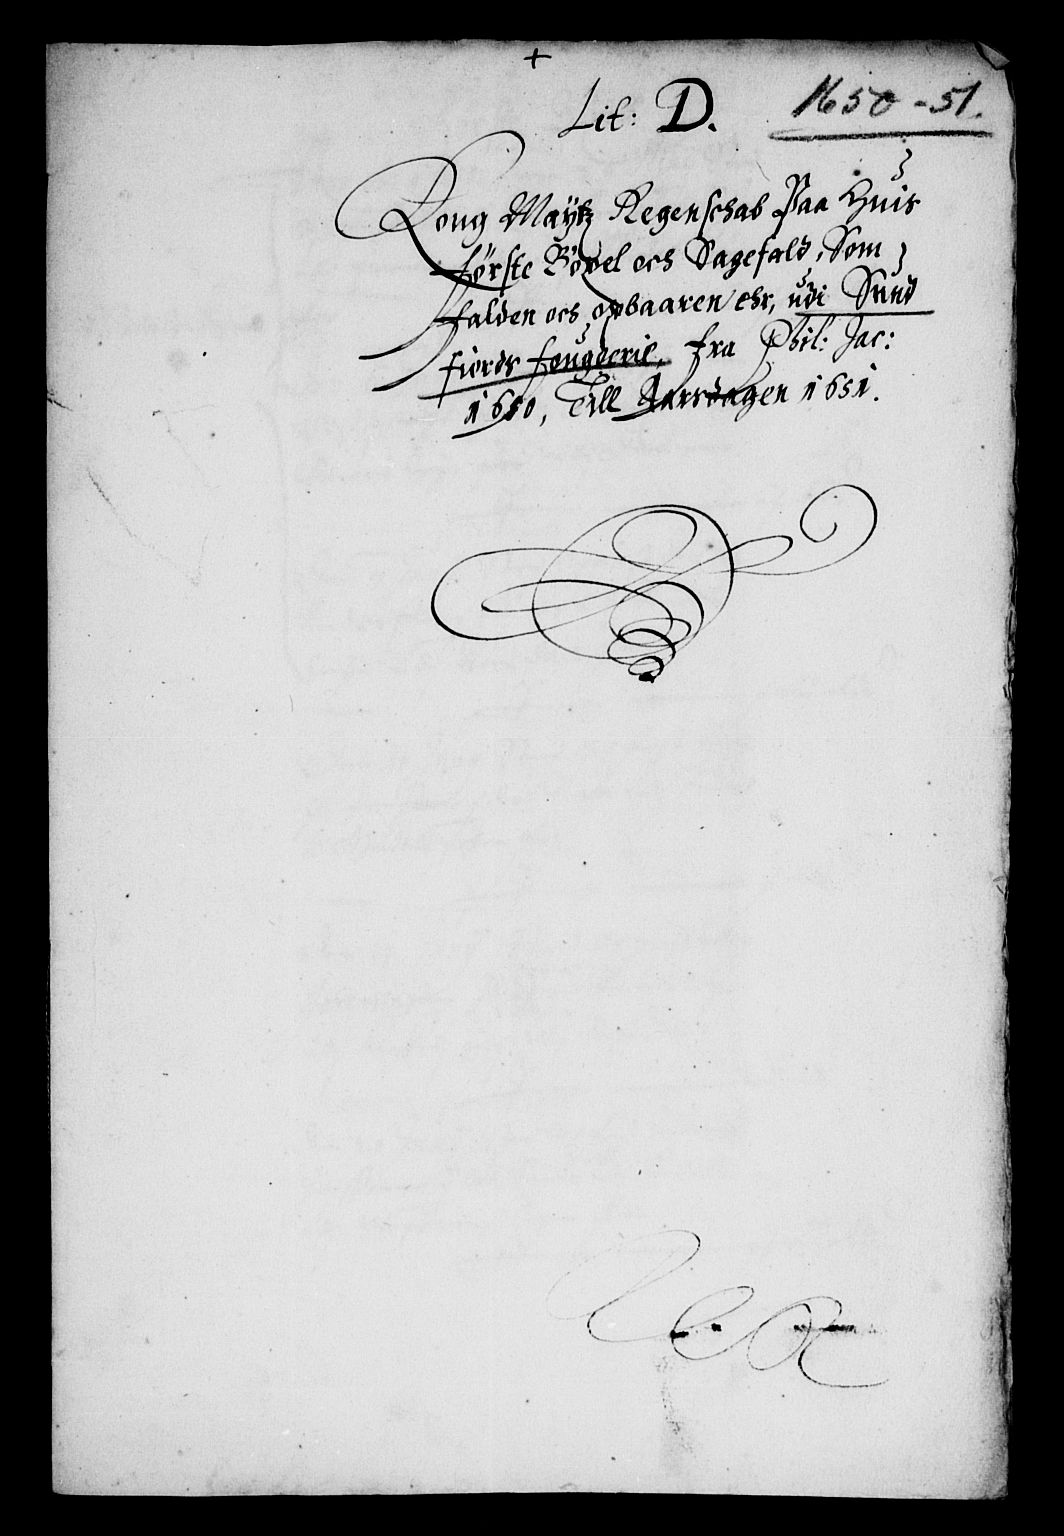 +
Lit: D.
1650-51.
Kong Maytz Regenschab Paa Huis
første Bøxel och Sagefald, Som
falden och opbaaren ehr, udi Sund
fiords fougderie, fra Phil: Jac:
1650, Till Aarsdagen 1651.